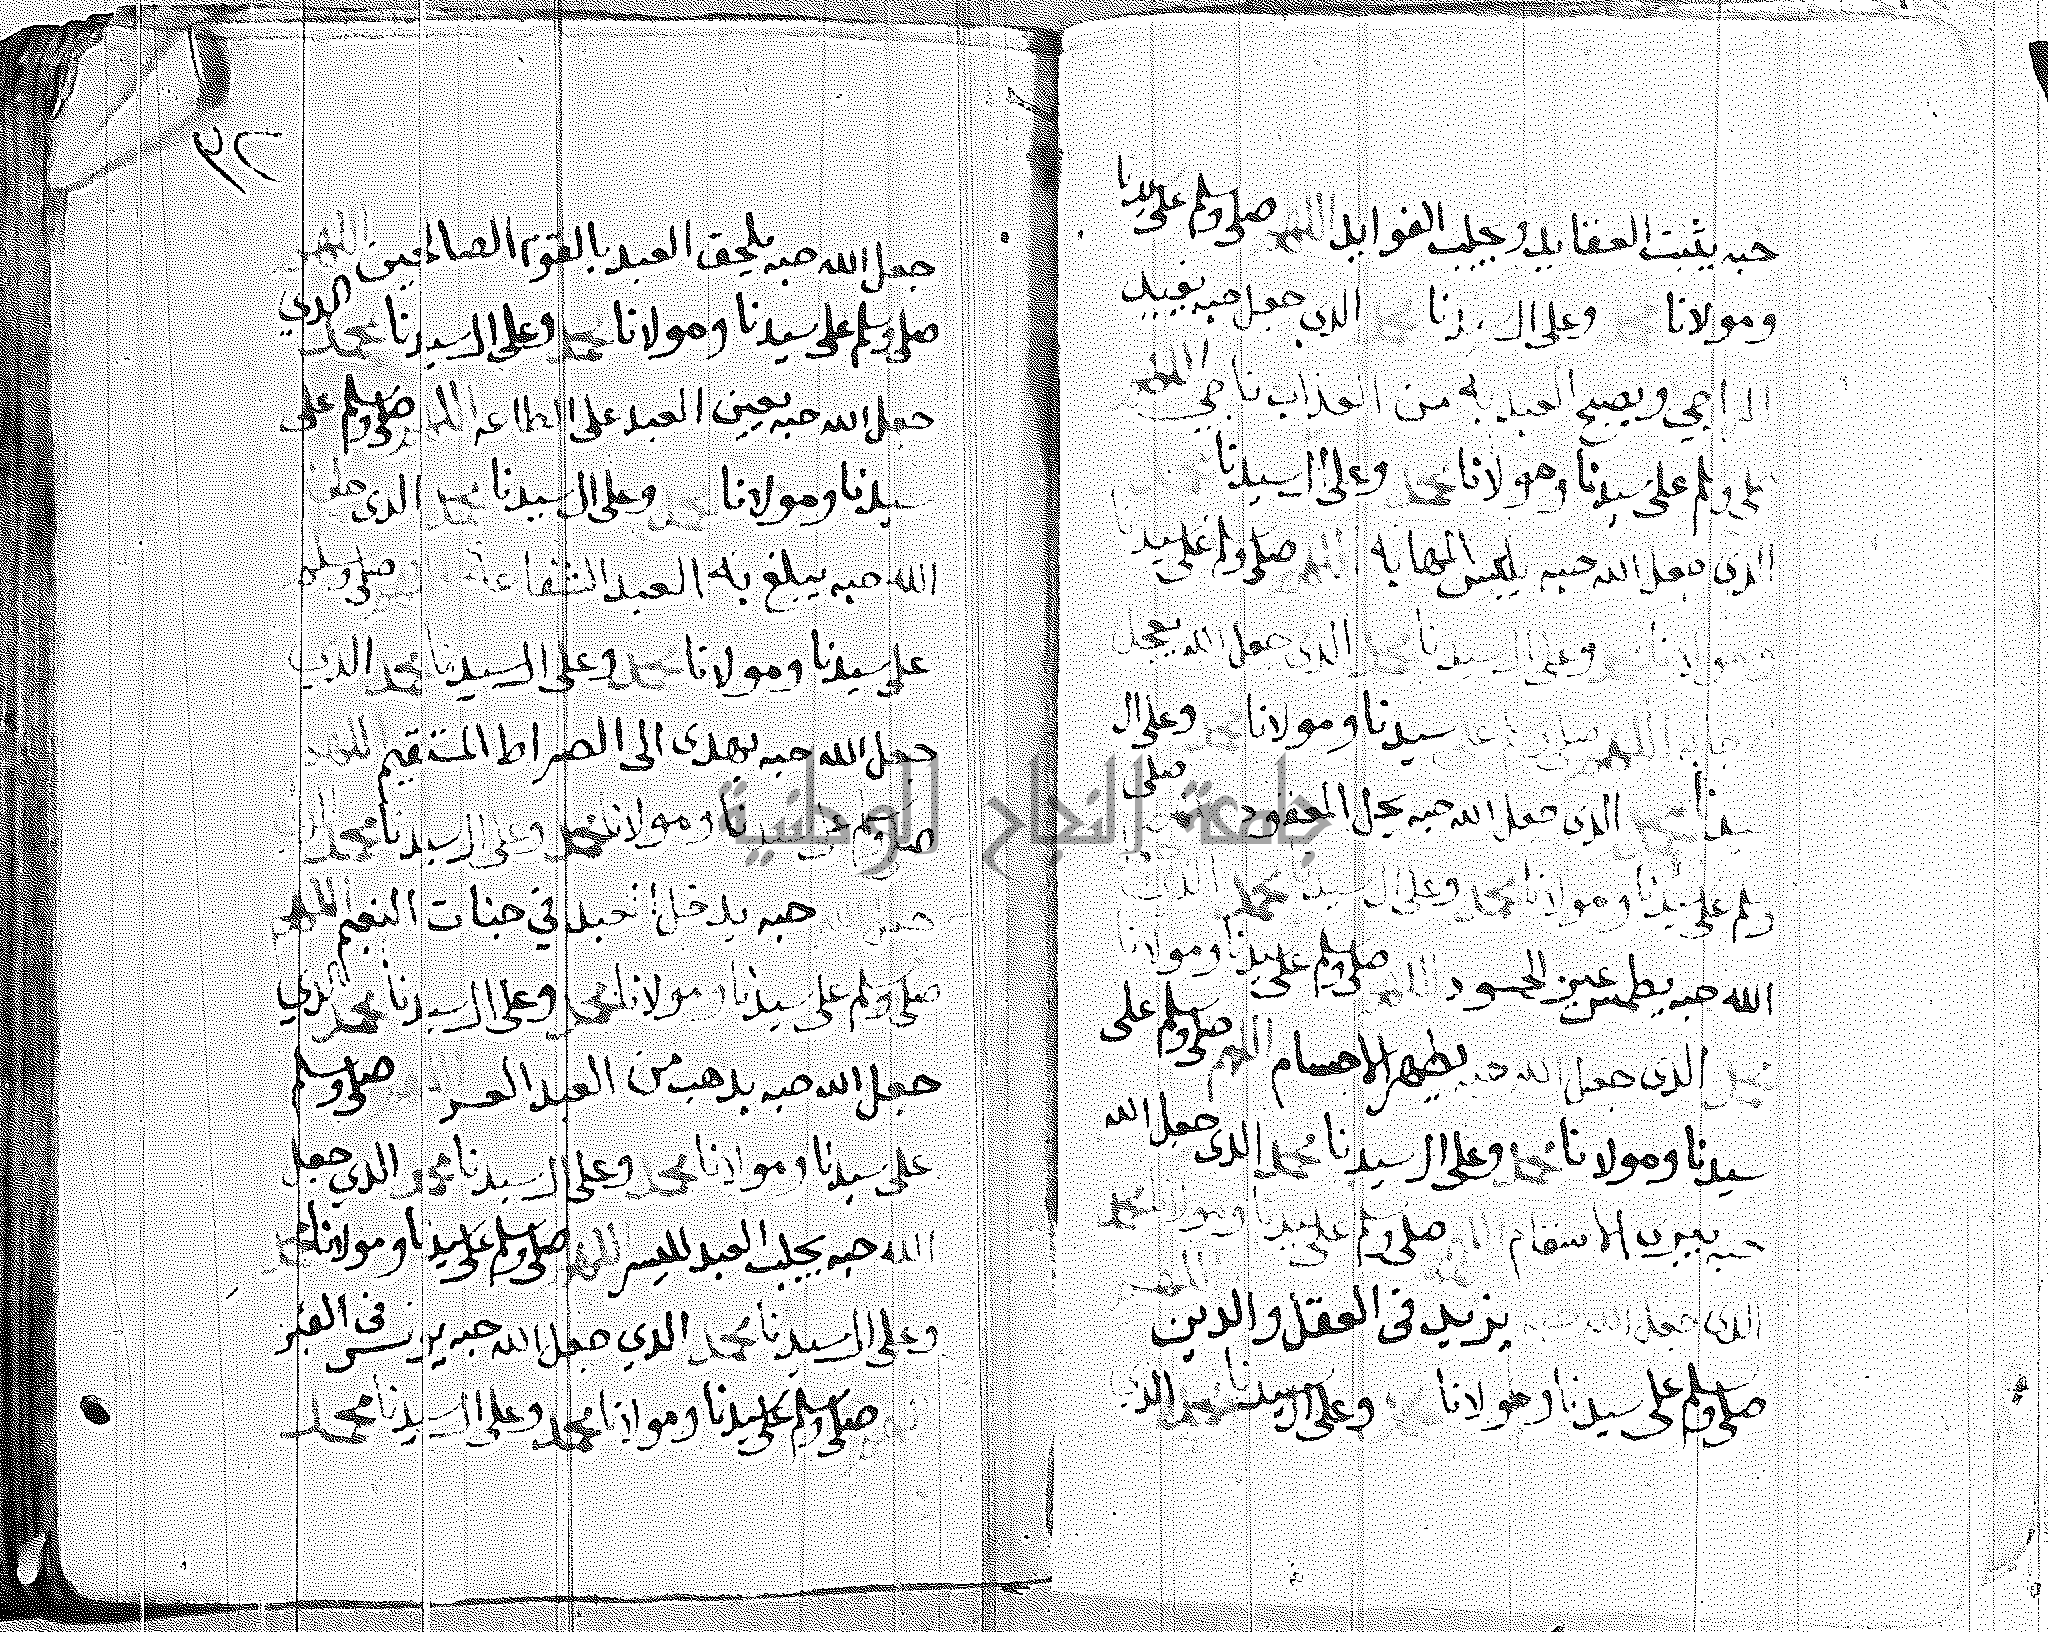 حبه يثبت العقايد وجلب الفوايد اللهم صلي وسلم على سيدنا
ومولانا وعلى ال سيدنا الذي جعل حبه يفيد
الراجي ويصبح العبد به من العذاب ناجي اللهم
صلي وسلم على سيدنا ومولانا محمد وعلى ال سيدنا
الذي جعل الله حبه يلبس المهابه اللهم صلي وسلم على سيدنا
ومولانا وعلى ال سيدنا محمد الذي جعل الله يعجل
اللهم صلي وسلم على سيدنا ومولانا محمد وعلى ال
سيدنا محمد الذي جعل الله حبه يحل المعقود اللهم صلي
وسلم على سيدنا ومولانا محمد وعلى ال سيدنا محمد الذي
الله حبه يطمس عين الحسود اللهم صلي وسلم على سيدنا ومولانا
محمد الذي جعل الله حبه يطهر الاجسام اللهم صلي وسلم على
سيدنا ومولانا محمد وعلى ال سيدنا محمد الذي جعل الله
حبه يبري الاسقام اللهم صلي وسلم على سيدنا ومولانا محمد
الذي جعل الله حبه يزيد في العقل والدين اللهم
صلي وسلم على سيدنا ومولانا وعلى ال سيدنا محمد الذي
٣٢
جعل الله حبه يلحق العبد بالقوم الصالحين اللهم
صلي وسلم على سيدنا ومولانا محمد وعلى ال سيدنا محمد الذي
جعل الله حبه يعين العبد على الطاعه اللهم صلي وسلم على
سيدنا ومولانا محمد وعلى ال سيدنا محمد الذي جعل
الله حبه يبلغ به العبد الشفاعه صلي وسلم
على سيدنا ومولانا محمد وعلى ال سيدنا محمد الذي
جعل الله حبه يهدي الى الصراط المستقيم اللهم
صلي وسلم على سيدنا ومولانا محمد وعلى ال سيدنا محمد الذي
جعل الله حبه يدخل العبد في جنات النعيم اللهم
صلي وسلم على سيدنا ومولانا محمد وعلى ال سيدنا محمد الذي
جعل الله حبه يذهب من العبد العسر صلي وسلم
على سيدنا ومولانا محمد وعلى ال سيدنا محمد الذي جعل
الله حبه يجلب العبد لليسر اللهم صلي وسلم على سيدنا ومولانا محمد
وعلى ال سيدنا محمد الذي جعل الله حبه يونس في القبر
صلي وسلم على سيدنا ومولانا محمد وعلى ال سيدنا محمد
جامعة النجاح الوطنية